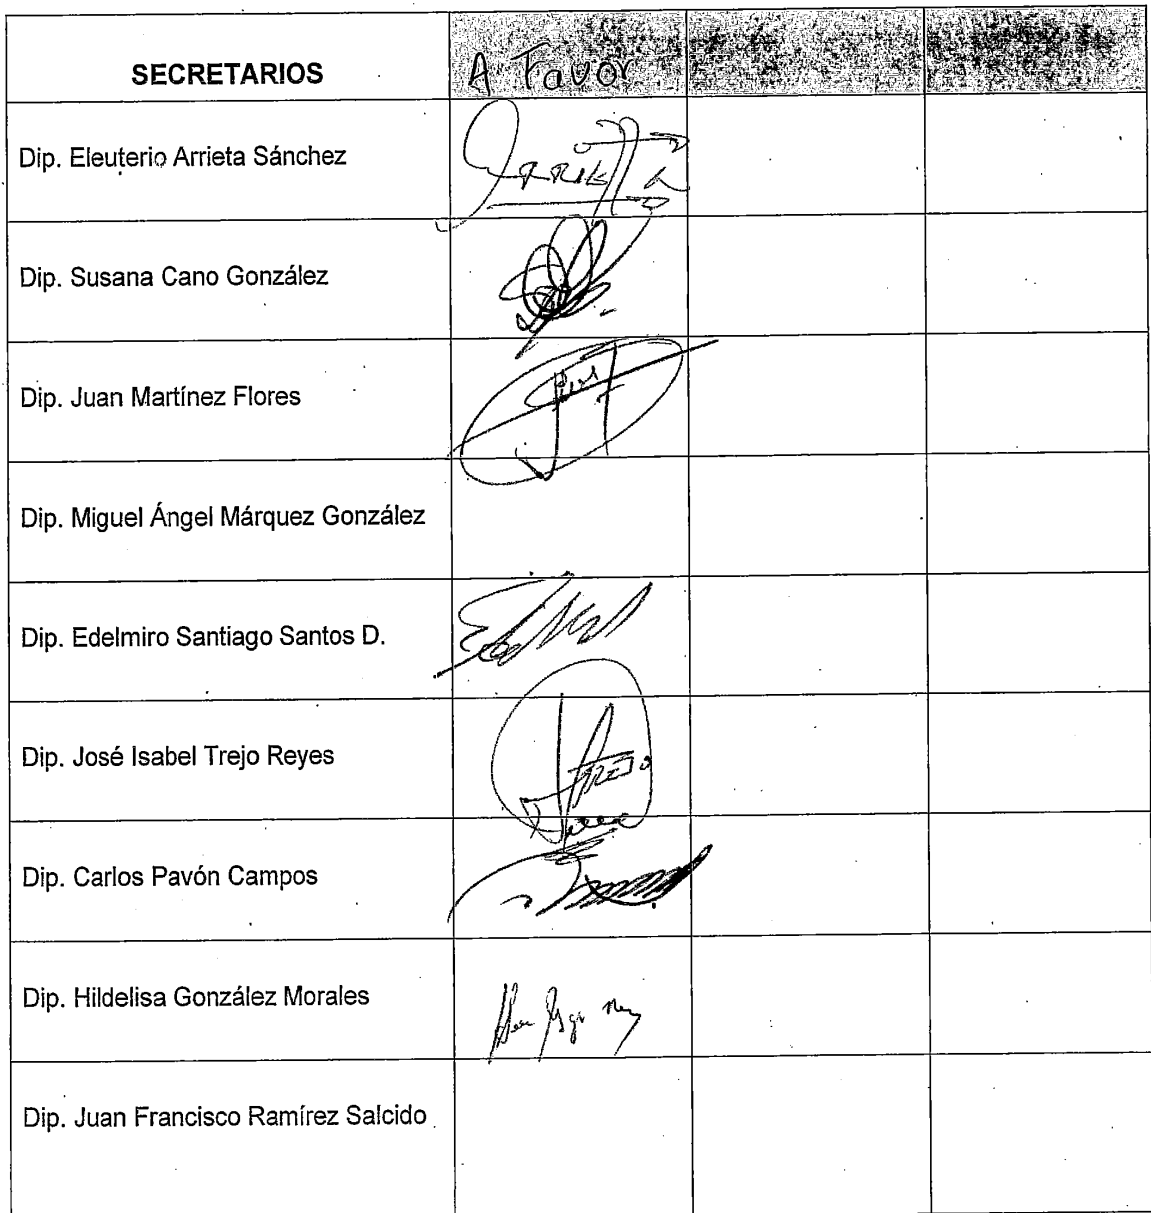 SECRETARIOS
A Favor
Dip. Eleuterio Arrieta Sánchez
Dip. Susana Cano González
Dip. Juan Martínez Flores
Dip. Miguel Ángel Márquez González
Dip. Edelmiro Santiago Santos D.
Dip. José Isabel Trejo Reyes
Dip. Carlos Pavón Campos
Dip. Hildelisa González Morales
Dip. Juan Francisco Ramírez Salcido